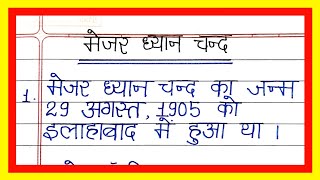 मेजर ध्यान चन्द
1. मेजर ध्यान चन्द का जन्म
29 अगस्त, 1905 को
इलाहाबाद में हुआ था ।